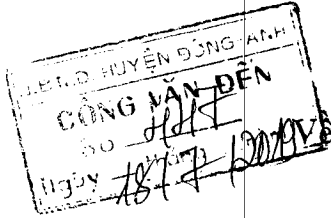 U.B.N.D HUYỆN ĐÔNG ANH
CÔNG VĂN ĐẾN
Ngày 18/7/2019